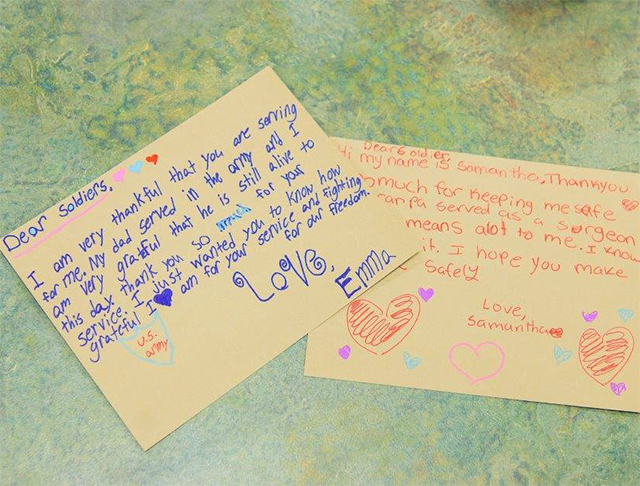 Dear Soldiers,
I am very thankful that you are serving
for me. My dad served in the army and I
am very grateful that he is still alive to
this day. thank you so much for your
service. I just wanted you to know how
grateful I am for your service and fighting
for our freedom.
Love,
Emma
U.S.
army
Dear Soldier,
Hi my name is Samantha, Thankyou
much for keeping me safe
served as a surgeon
means alot to me. I know
it. I hope you make
safely
Love,
Samantha